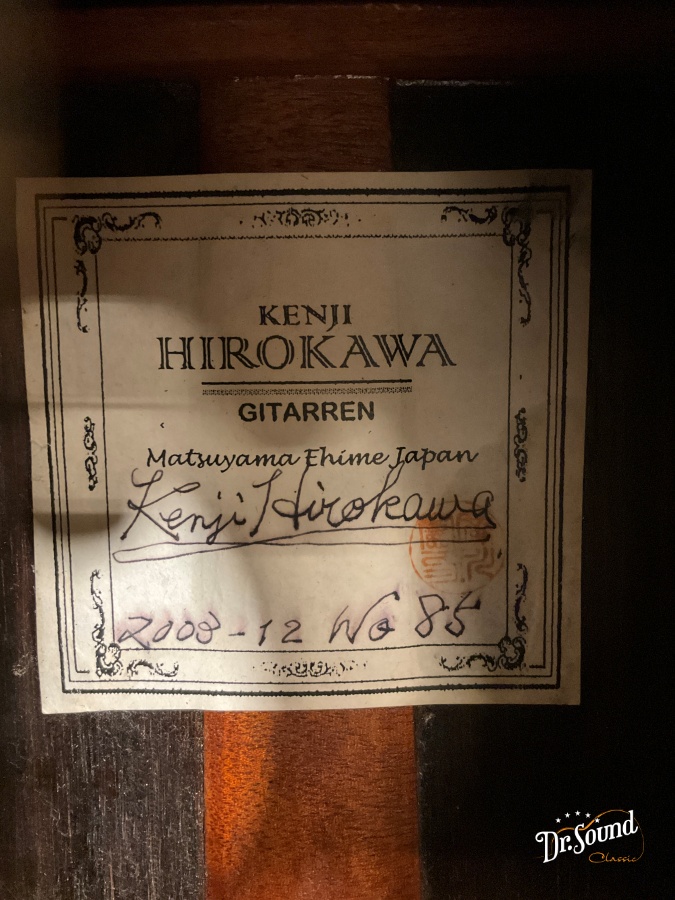 KENJI
HIROKAWA
GITARREN
Matsuyama Ehime Japan
Kenji Hirokawa
2008-12 No 85
Dr.Sound
Classic